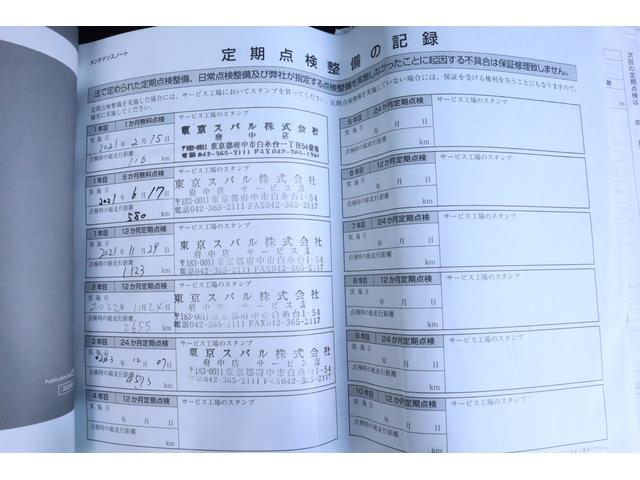 メンテナンスノート
定期点検整備の記録
法で定められた定期点検整備、日常点検整備及び弊社が指定する点検整備を実施しなかったことに起因する不具合は保証修理致しません。
定期点検整備を実施した場合には、サービス工場においてスタンプを貰ってください。定期点検整備を実施していない場合には、保証を受ける権利を失うことにもなりますので、
確実に実施してください。
1年目 1か月無料点検
サービス工場のスタンプ
実施日
2021年 2月 15日
点検時の総走行距離
116 km
東京スバル株式会社
府中店
〒183-0011 東京都府中市白糸台一丁目54番地
電話 042-365-2111 FAX042-365-
1年目 6か月無料点検
サービス工場のスタンプ
実施日
2021年 6月 17日
点検時の総走行距離
580 km
東京スバル株式会社
府中店 サービス課
〒183-0011東京都府中市白糸台1-54
電話042-365-2111 FAX042-365-2117
1年目 12か月定期点検
サービス工場のスタンプ
実施日
2021年 11月 29日
点検時の総走行距離
1123 km
東京スバル株式会社
府中店 サービス課
〒183-0011東京都府中市白糸台1-54
電話042-365-2111 FAX042-365-2117
2年目 12か月定期点検
サービス工場のスタンプ
実施日
2022年 11月24日
点検時の総走行距離
2655 km
東京スバル株式会社
府中店 サービス課
〒183-0011東京都府中市白糸台1-54
電話042-365-2111 FAX042-365-2117
3年目 24か月定期点検
サービス工場のスタンプ
実施日
年 12月 07日
点検時の総走行距離
km
東京スバル株式会社
府中店 サービス課
〒183-0011東京都府中市白糸台1-54
電話042-365-2111 FAX042-365-2117
4年目 12か月定期点検
サービス工場のスタンプ
実施日
年 月 日
点検時の総走行距離
km
5年目 24か月定期点検
サービス工場のスタンプ
実施日
年 月 日
点検時の総走行距離
km
6年目 12か月定期点検
サービス工場のスタンプ
実施日
年 月 日
点検時の総走行距離
km
7年目 24か月定期点検
サービス工場のスタンプ
実施日
年 月 日
点検時の総走行距離
km
8年目 12か月定期点検
サービス工場のスタンプ
実施日
年 月 日
点検時の総走行距離
km
9年目 24か月定期点検
サービス工場のスタンプ
実施日
年 月 日
点検時の総走行距離
km
10年目 12か月定期点検
サービス工場のスタンプ
実施日
年 月 日
点検時の総走行距離
km
次回の定期点検は